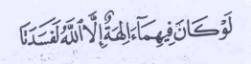 لَوْ كَانَ فِيهِمَآ ءَالِهَةٌ إِلَّا ٱللَّهُ لَفَسَدَتَا